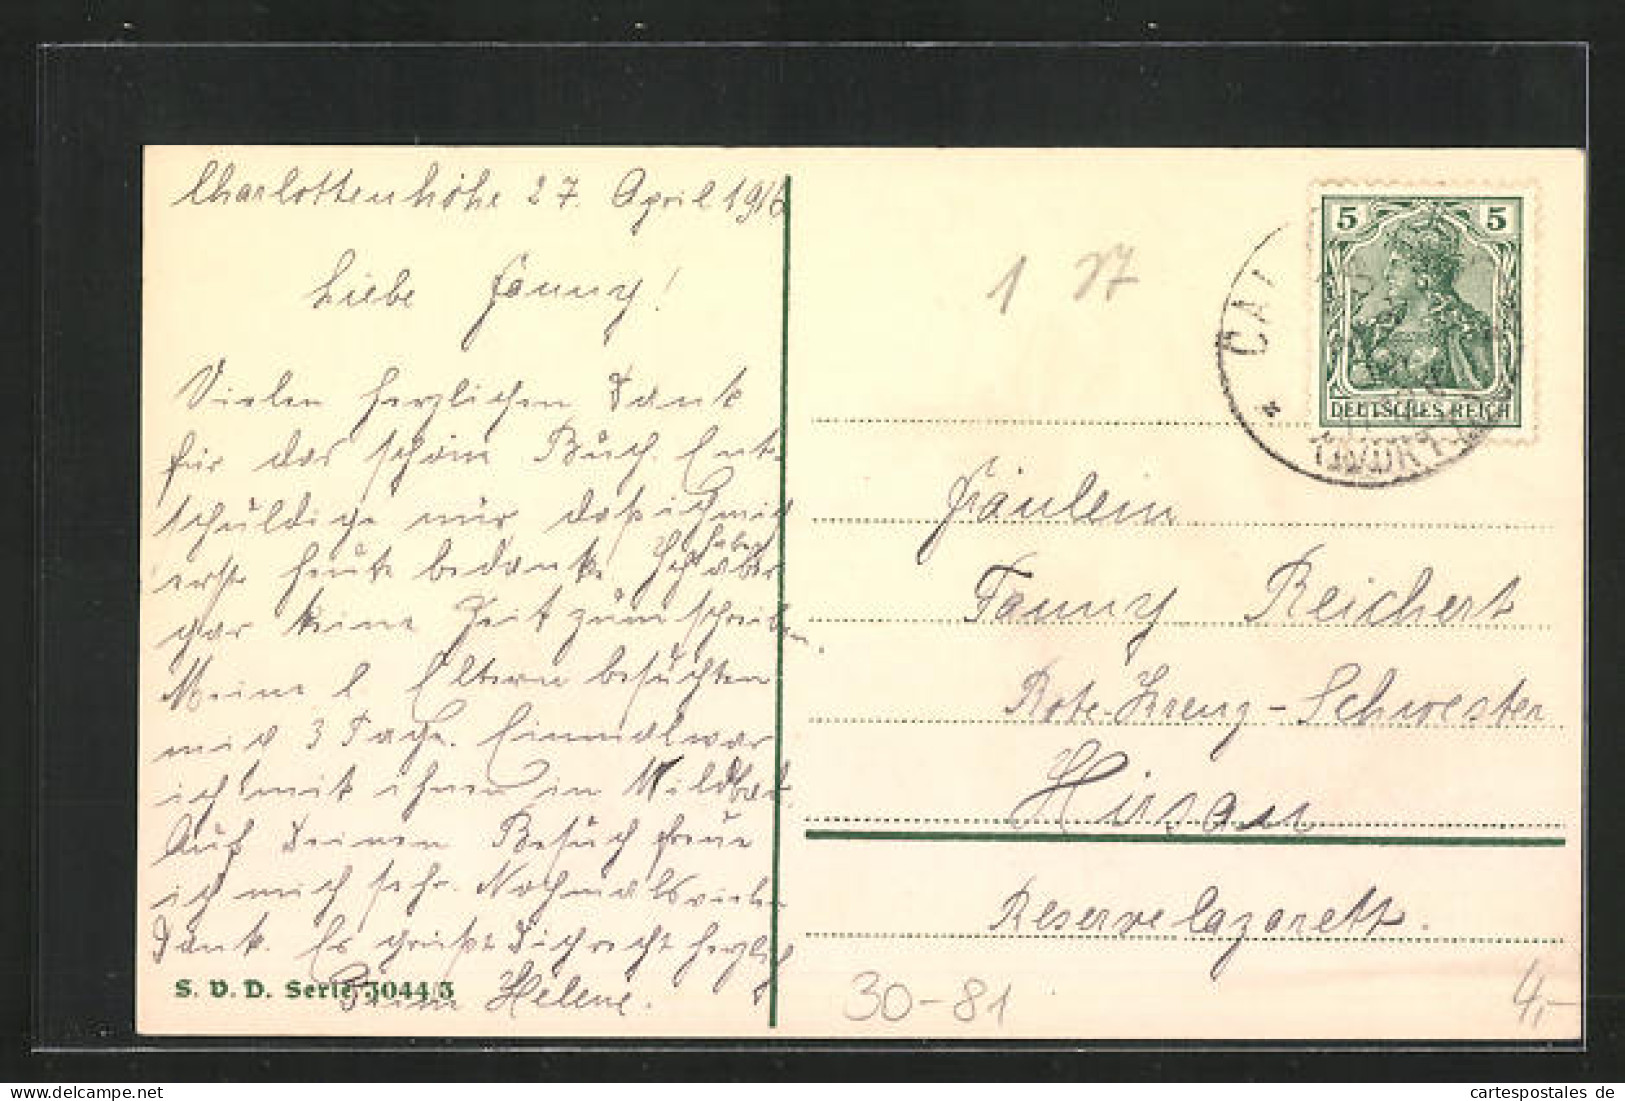 Charlottenhöhe 27. April 1916
Liebe Fanny!
Vielen herzlichen Dank
für das schöne Buch. Ent-
schuldige nur daß ich mich
erst heute bedanke. Ich habe aber
gar keine Zeit zum schreiben.
Meine l. Eltern besuchten
mich 3 Tage. Einmal war
ich mit ihnen in Wildbad.
Auf Deinen Besuch freue
ich mich sehr. Nochmals vielen
Dank. Es grüßt Dich recht herzlich
Deine Helene.
S. V. D. Serie 3044/3
1
5 5
DEUTSCHES REICH
CAL
Fräulein
Fanny Reichert
Rote-Kreuz-Schwester
Hirsau
Reservelazarett.
30-81
4,-
cartespostales de